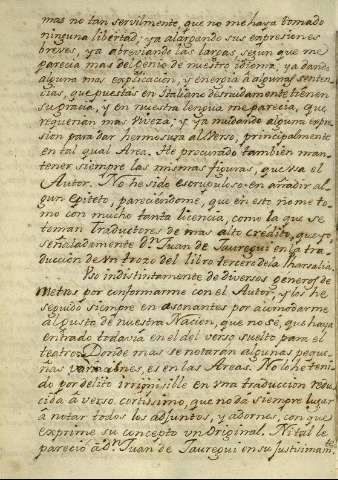 mas no tan servilmente, que no me haya tomado
ninguna libertad, ya alargando sus expresiones
breves, ya abreviando las largas, segun que me
parecia mas del genio de nuestro idioma, ya dando
alguna mas explicacion, y energia à algunas senten
cias, que puestas en Italiano desnudamente tienen
su gracia, y en nuestra lengua me parecia, que
requerian mas viveza; y ya mudando alguna expre
sion para dar hermosura al Verso, principalmente
en tal qual Area. He procurado tambien man
tener siempre las mismas figuras, que usa el
Autor. No he sido escrupuloso en añadir al
gun epiteto, pareciendome, que en esto no me to
mo con mucho tanta licencia, como la que se
toman Traductores de mas alto credito, que yo,
señaladamente Dn. Juan de Jauregui en la tra
duccion de un trozo del libro tercero de la Pharsalia.
Uso indistintamente de diversos generos de
metros por conformarme con el Autor, y los he
seguido siempre en asonantes por acomodarme
al gusto de nuestra Nacion, que no sè, que haya
entrado todavia en el del verso suelto para el
teatro. Donde mas se notaràn algunas peque
ñas variaciones, es en las Areas. No lo he teni
do por delito irrimisible en una traduccion redu
cida à verso cortissimo, que no dà siempre lugar
à notar todos los adjuntos, y adornos, con que
exprime su concepto un Original. Ni tal le
pareciò à Dn. Juan de Jauregui en su justisimamte